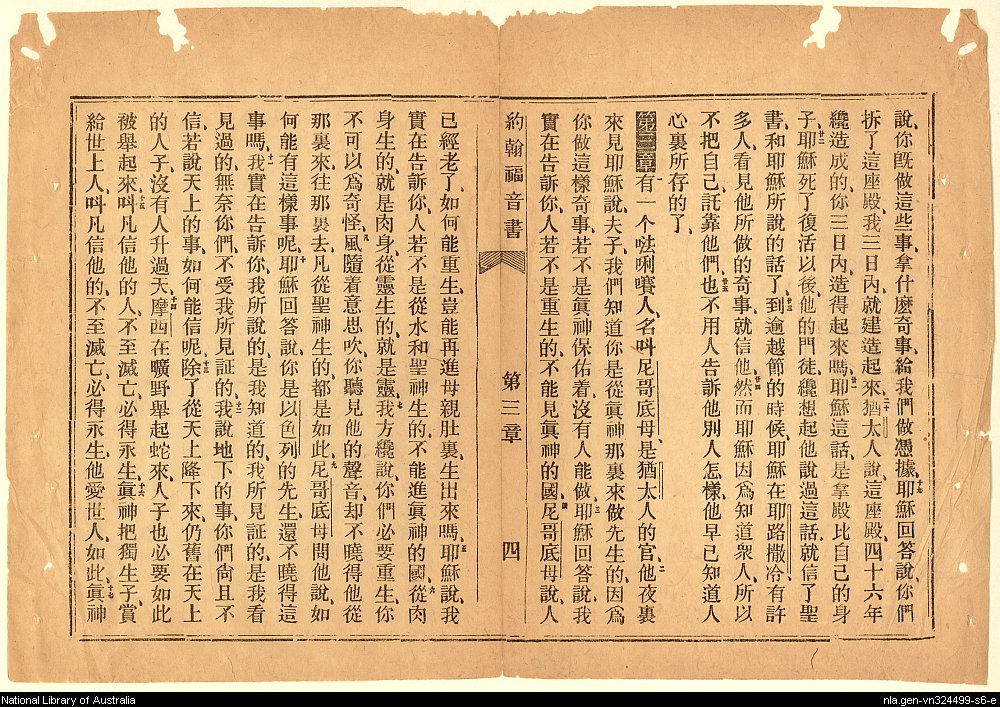 說、你旣做這些事、拿什麽奇事、給我們做憑據、十九耶穌回答說、你們
拆了這座殿、我三日內、就建造起來、二十猶太人說、這座殿、四十六年
纔造成的、你三日內、造得起來嗎、廿一耶穌這話、是拿殿比自己的身
子、廿二耶穌死了復活以後、他的門徒、纔想起他說過這話、就信了聖
書、和耶穌所說的話了、廿三到逾越節的時候、耶穌在耶路撒冷、有許
多人、看見他所做的奇事、就信他、廿四然而耶穌、因爲知道衆人、所以
不把自己、託靠他們、廿五也不用人告訴他、別人怎樣、他早已知道人
心裏所存的了、
第三章一有一个𠵽唎賽人、名呌尼哥底母、是猶太人的官、二他夜裏
來見耶穌說、夫子、我們知道你是從眞神那裏來做先生的、因爲
你做這樣奇事、若不是眞神保佑着、沒有人能做、三耶穌回答說、我
實在告訴你、人若不是重生的、不能見眞神的國、四尼哥底母說、人
約翰福音書 第三章 四
已經老了、如何能重生、豈能再進母親肚裏生出來嗎、五耶穌說、我
實在告訴你、人若不是從水和聖神生的、不能進眞神的國、六從肉
身生的、就是肉身、從靈生的、就是靈、七我方纔說、你們必要重生、你
不可以爲奇怪、八風隨着意思吹、你聽見他的聲音、却不曉得他從
那裏來、往那裏去、凡從聖神生的、都是如此、九尼哥底母問他說、如
何能有這樣事呢、十耶穌回答說、你是以色列的先生、還不曉得這
事嗎、十一我實在告訴你、我所說的、是我知道的、我所見証的、是我看
見過的、無奈你們、不受我所見証的、十二我說地下的事、你們尙且不
信、若說天上的事、如何能信呢、十三除了從天上降下來、仍舊在天上
的人子、沒有人升過天、十四摩西在曠野舉起蛇來、人子也必要如此
被舉起來、十五呌凡信他的人、不至滅亡、必得永生、十六眞神把獨生子、賞
給世上人、呌凡信他的、不至滅亡、必得永生、他愛世人如此、十七眞神
National Library of Australia
nla.gen-vn324499-s6-e